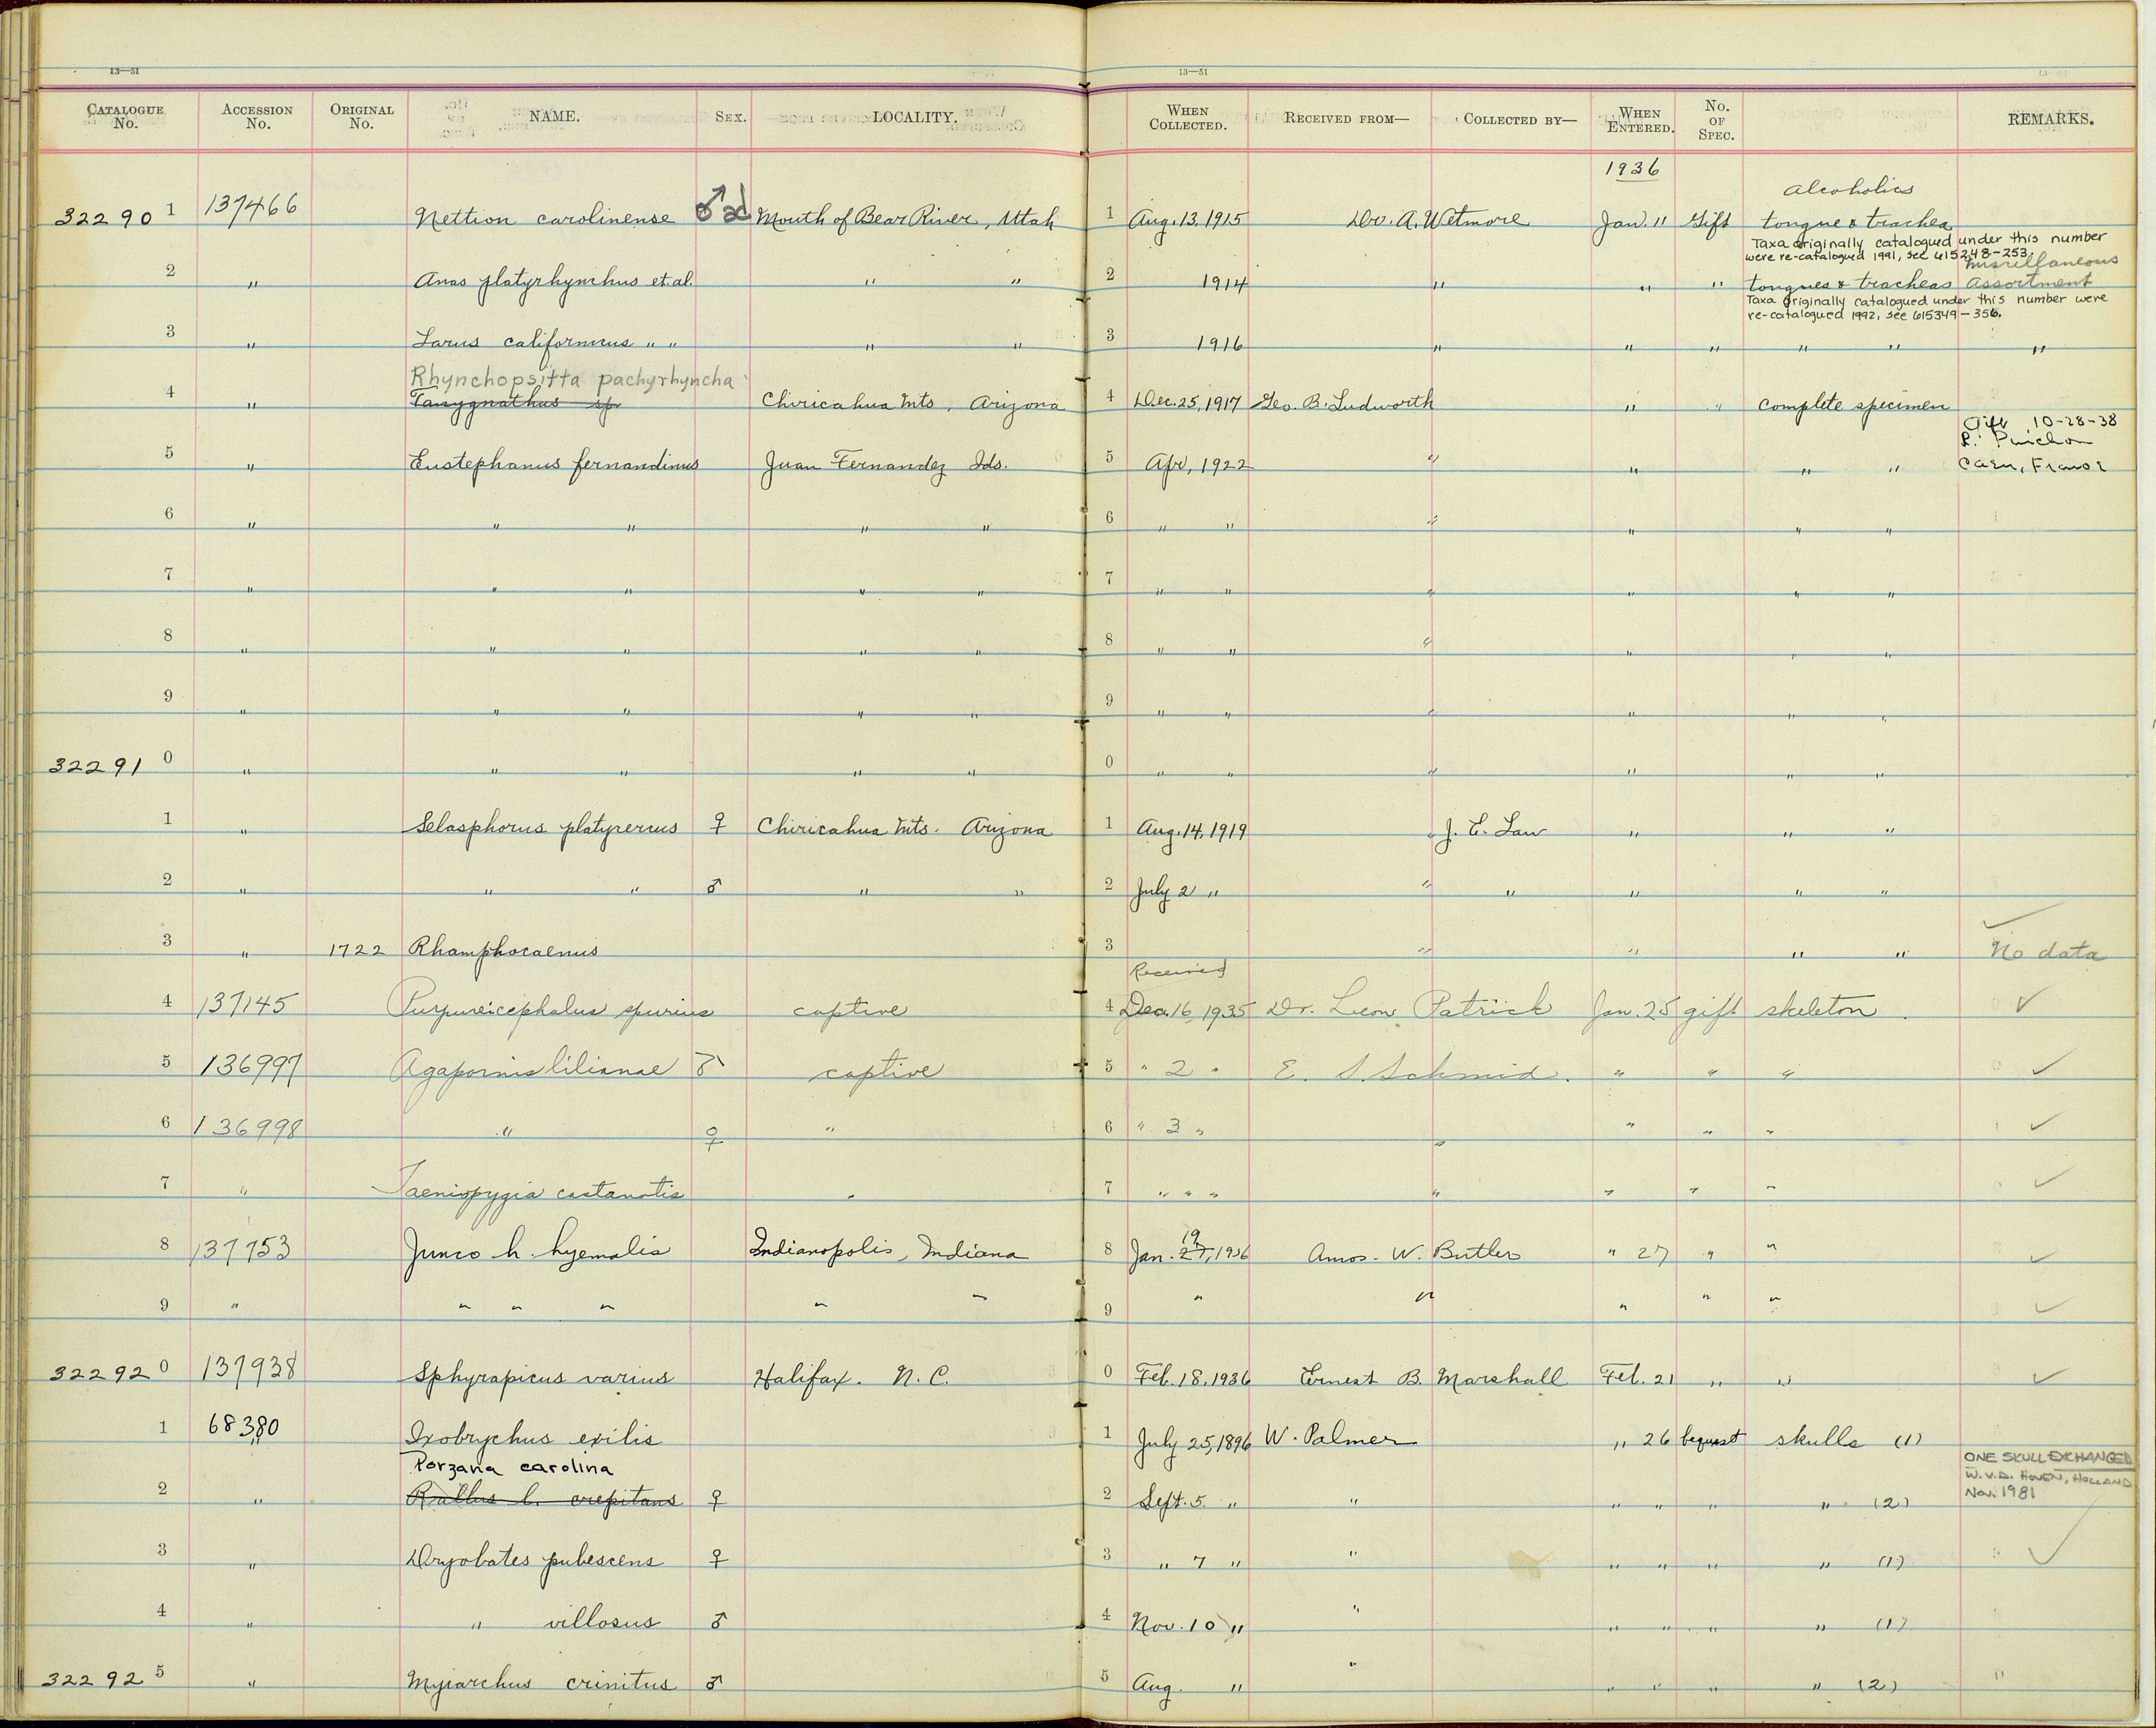 13—51 13—51
CATALOGUE No. ACCESSION No. ORIGINAL No. NAME. SEX. LOCALITY. WHEN COLLECTED. RECEIVED FROM— COLLECTED BY— WHEN ENTERED. No. OF SPEC. REMARKS.
1936
Alcoholics
32290 1 137466 Nettion carolinense ♂ ad Mouth of Bear River, Utah 1 Aug. 13, 1915 Dr. A. Wetmore Jan. 11 Gift tongue & trachea
Taxa originally catalogued under this number
were re-catalogued 1991, see 615248-253.
miscellaneous
2 " Anas platyrhynchus et. al. " " 2 1914 " " " tongues & tracheas assortment
Taxa originally catalogued under this number were
re-catalogued 1992, see 615349-356.
3 " Larus californicus " " " " 3 1916 " " " " " "
Rhynchopsitta pachyrhyncha
4 " Tanygnathus sp. Chiricahua Mts, Arizona 4 Dec. 25, 1917 Geo. B. Ludworth " " complete specimen
Gift 10-28-38
5 " Eustephanus fernandinus Juan Fernandez Ids. 5 Apr, 1922 " " " " Caen, France
6 " " " " " 6 " " " " " "
7 " " " " " 7 " " " " " "
8 " " " " " 8 " " " " " "
9 " " " " " 9 " " " " " "
32291 0 " " " " " 0 " " " " " "
1 " Selasphorus platycercus ♀ Chiricahua Mts. Arizona 1 Aug. 14, 1919 " J. E. Law " " "
2 " " " ♂ " " 2 July 2 " " " " " "
3 " 1722 Rhamphocaenus 3 " " " " No data
Received
4 137145 Purpureicephalus spurius captive 4 Dec. 16, 1935 Dr. Leon Patrick Jan. 25 gift skeleton ✓
5 136997 Agapornis lilianae ♂ captive 5 " 2 " E. S. Schmid. " " " ✓
6 136998 " ♀ " 6 " 3 " " " " " ✓
7 " Taeniopygia castanotis " 7 " " " " " " " ✓
19
8 137753 Junco h. hyemalis Indianapolis, Indiana 8 Jan. 27, 1936 Amos. W. Butler " 27 " " ✓
9 " " " " " " 9 " " " " " ✓
32292 0 137938 Sphyrapicus varius Halifax. N. C. 0 Feb. 18, 1936 Ernest B. Marshall Feb. 21 " " ✓
1 68380 Ixobrychus exilis 1 July 25, 1896 W. Palmer " 26 bequest skulls (1)
Porzana carolina ONE SKULL EXCHANGED
W. V.D. HOVEN, HOLLAND
2 " Rallus l. crepitans ♀ 2 Sept. 5 " " " " " " (2) Nov. 1981
3 " Dryobates pubescens ♀ 3 " 7 " " " " " " (1) ✓
4 " " villosus ♂ 4 Nov. 10 " " " " " " (1)
32292 5 " Myiarchus crinitus ♂ 5 Aug. " " " " " " (2)